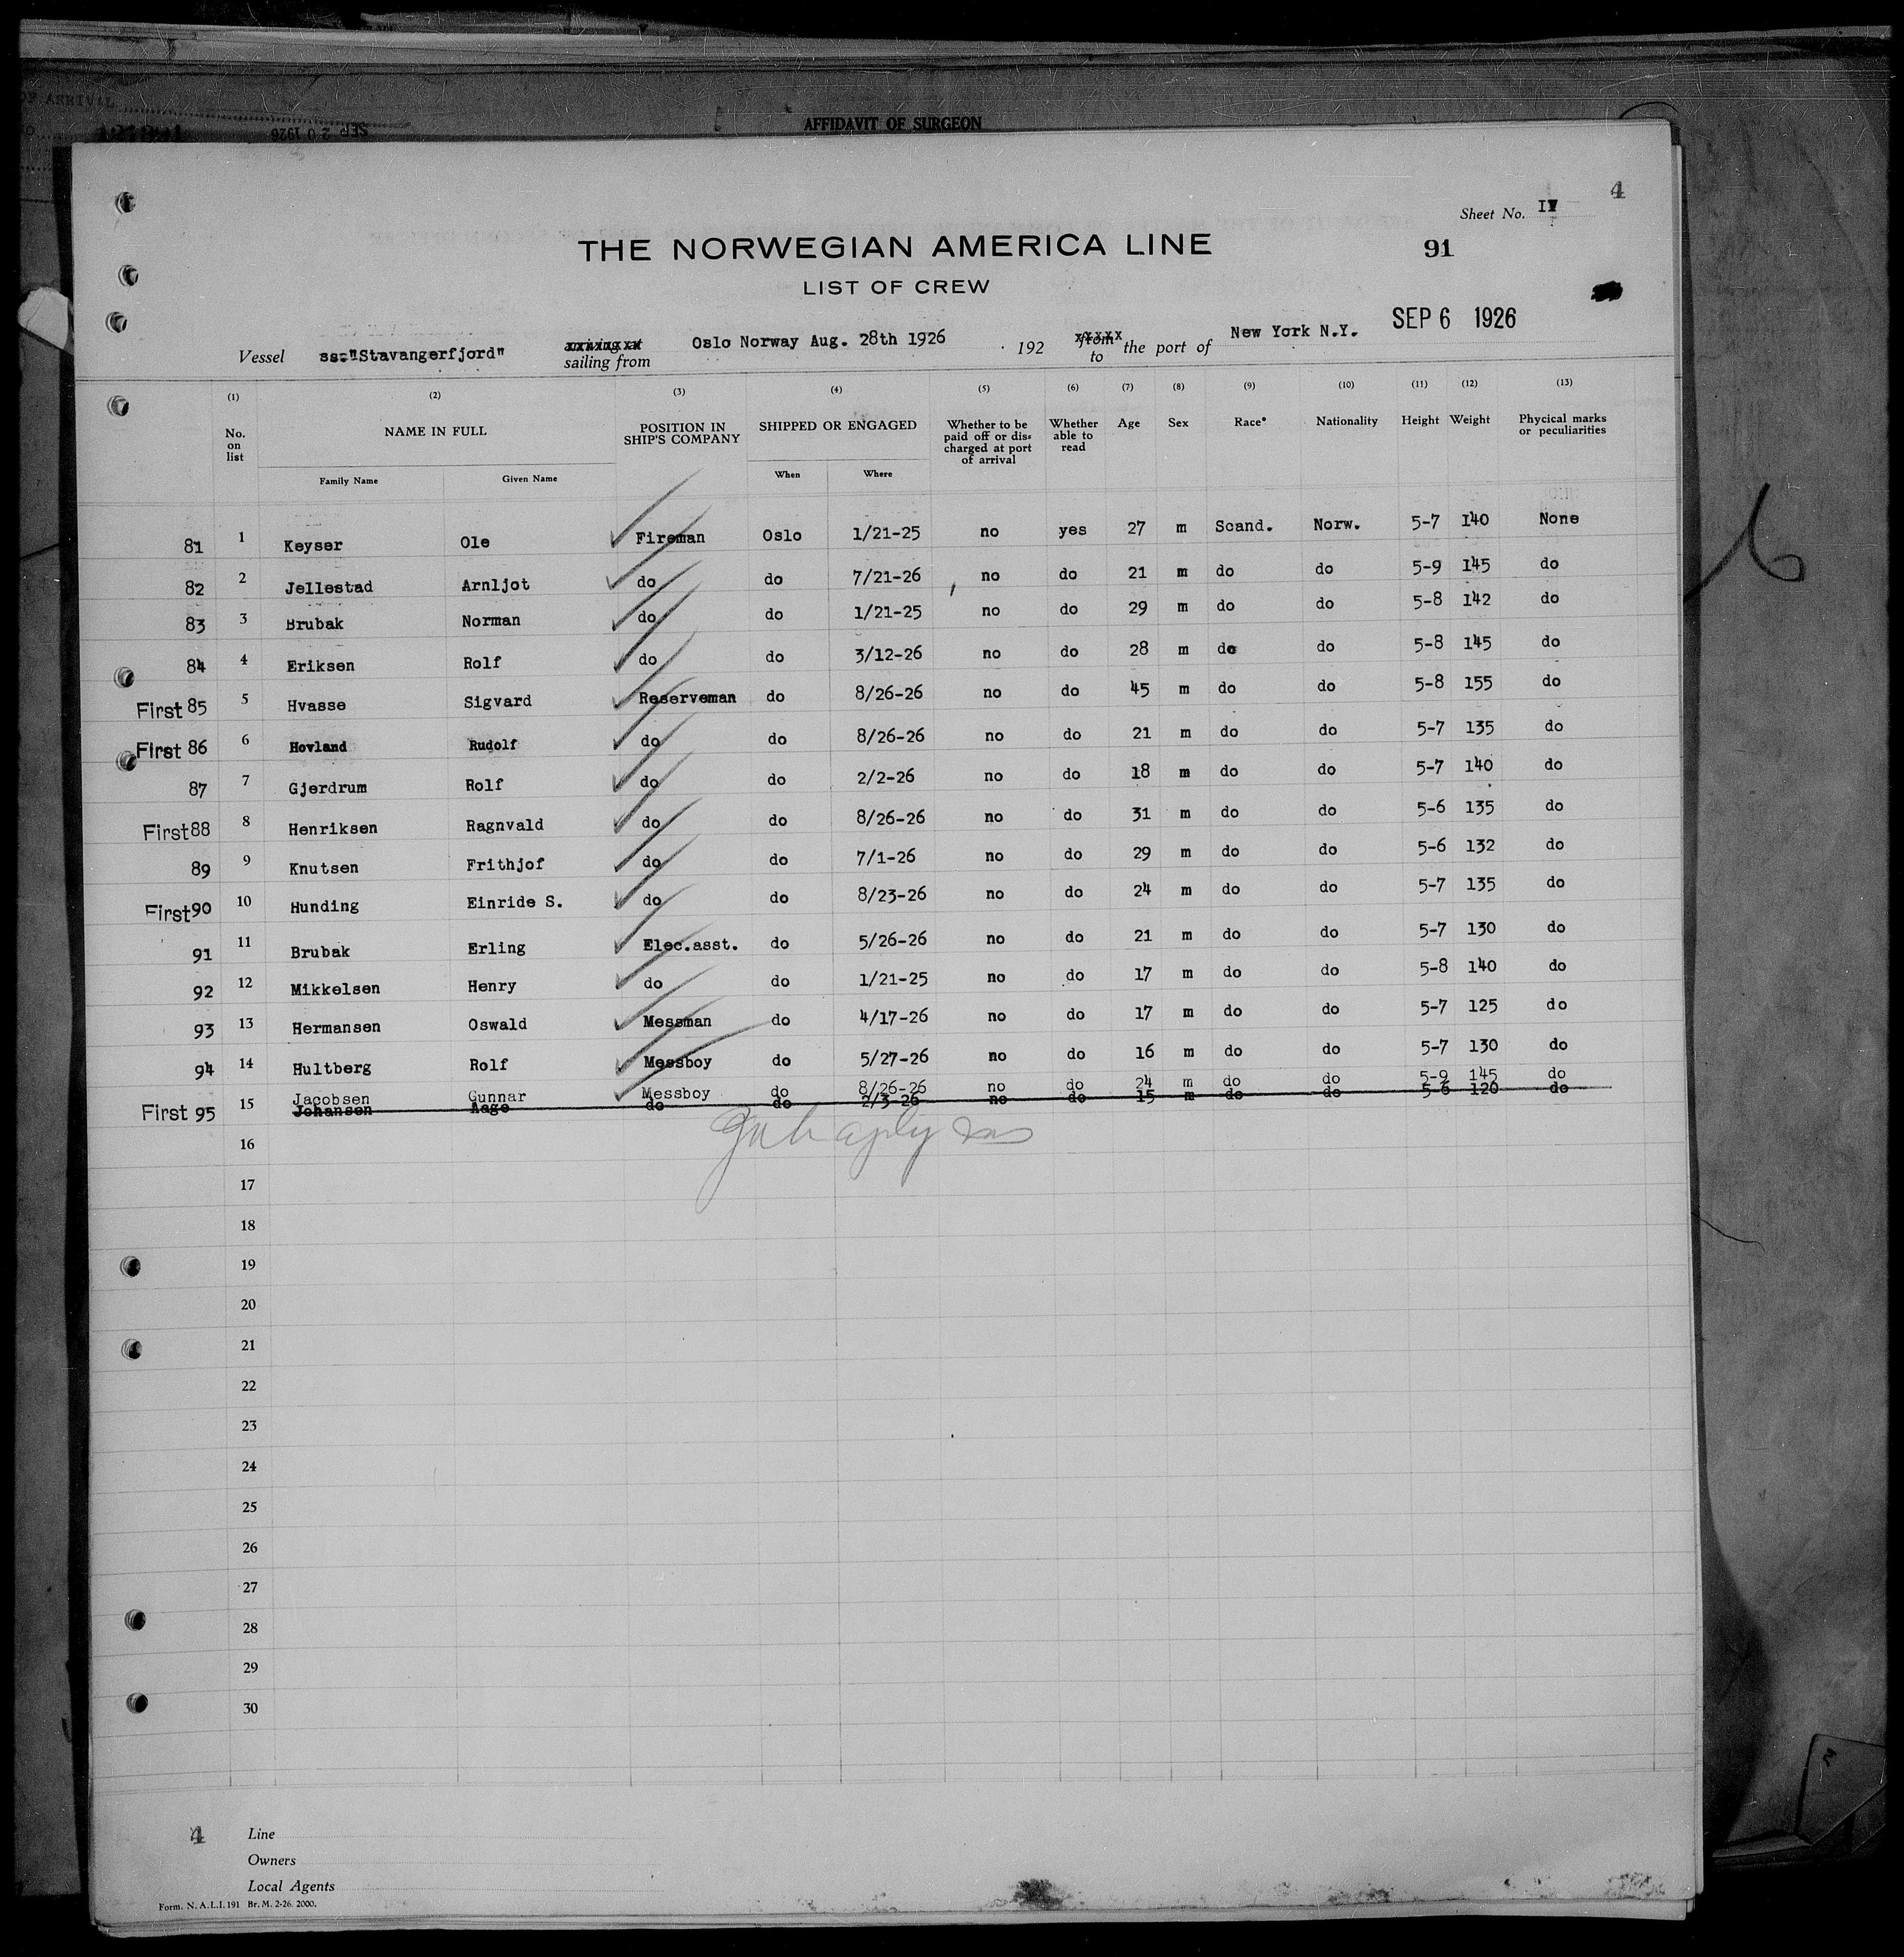 OF ARRIVAL
SEP 20 1926
AFFIDAVIT OF SURGEON
4
Sheet No. IV
THE NORWEGIAN AMERICA LINE
91
LIST OF CREW
SEP 6 1926
Vessel ss."Stavangerfjord" arriving sailing from Oslo Norway Aug. 28th 1926 192 from to the port of New York N.Y.
(1) (2) (3) (4) (5) (6) (7) (8) (9) (10) (11) (12) (13)
No. on list NAME IN FULL POSITION IN SHIP'S COMPANY SHIPPED OR ENGAGED Whether to be paid off or discharged at port of arrival Whether able to read Age Sex Race* Nationality Height Weight Phycical marks or peculiarities
Family Name Given Name When Where
81 1 Keyser Ole Fireman Oslo 1/21-25 no yes 27 m Scand. Norw. 5-7 140 None
82 2 Jellestad Arnljot do do 7/21-26 no do 21 m do do 5-9 145 do
83 3 Brubak Norman do do 1/21-25 no do 29 m do do 5-8 142 do
84 4 Eriksen Rolf do do 3/12-26 no do 28 m do do 5-8 145 do
First 85 5 Hvasse Sigvard Reserveman do 8/26-26 no do 45 m do do 5-8 155 do
First 86 6 Hovland Rudolf do do 8/26-26 no do 21 m do do 5-7 135 do
87 7 Gjerdrum Rolf do do 2/2-26 no do 18 m do do 5-7 140 do
First 88 8 Henriksen Ragnvald do do 8/26-26 no do 31 m do do 5-6 135 do
89 9 Knutsen Frithjof do do 7/1-26 no do 29 m do do 5-6 132 do
First 90 10 Hunding Einride S. do do 8/23-26 no do 24 m do do 5-7 135 do
91 11 Brubak Erling Elec.asst. do 5/26-26 no do 21 m do do 5-7 130 do
92 12 Mikkelsen Henry do do 1/21-25 no do 17 m do do 5-8 140 do
93 13 Hermansen Oswald Messman do 4/17-26 no do 17 m do do 5-7 125 do
94 14 Hultberg Rolf Messboy do 5/27-26 no do 16 m do do 5-7 130 do
Jacobsen Gunnar Messboy do 8/26-26 no do 24 m do do 5-9 145 do
First 95 15 Johansen Aage do do 2/3-26 no do 15 m do do 5-6 120 do
16
17
18
19
20
21
22
23
24
25
26
27
28
29
30
4
Line
Owners
Local Agents
Form. N. A. L. I. 191 Br. M. 2-26. 2000.